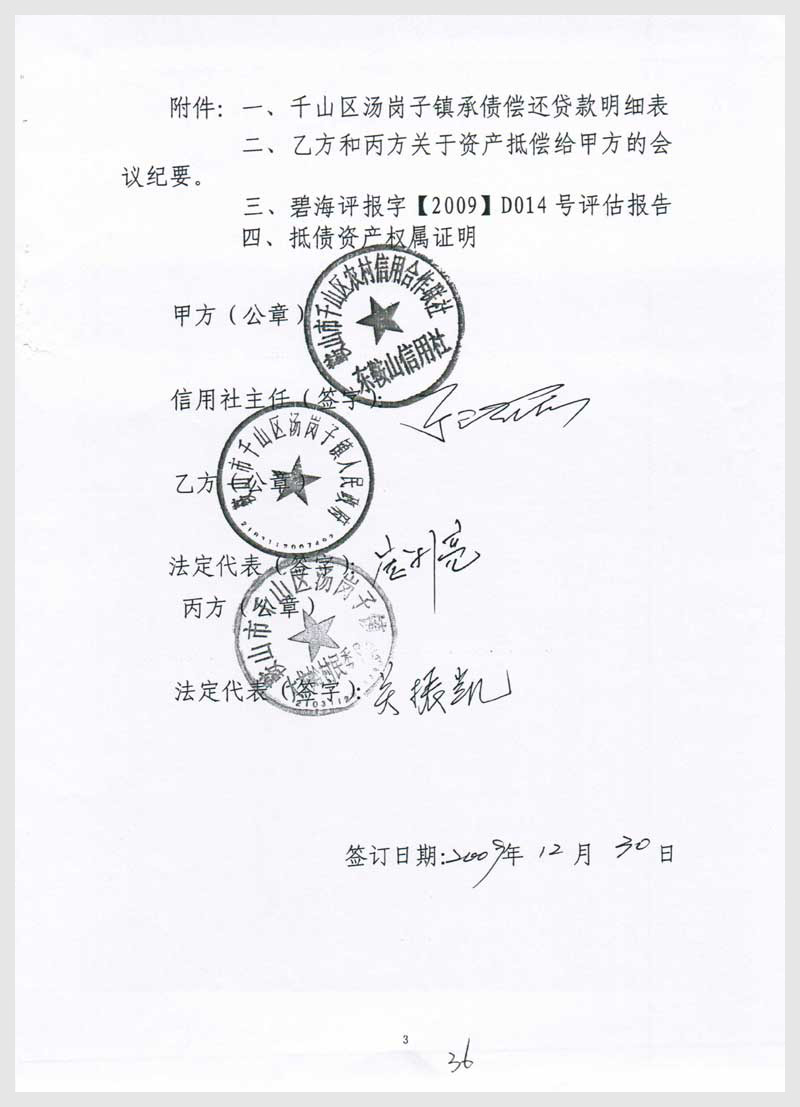 附件: 一、千山区汤岗子镇承债偿还贷款明细表
二、乙方和丙方关于资产抵偿给甲方的会
议纪要。
三、碧海评报字【2009】D014号评估报告
四、抵债资产权属证明
鞍山市千山区农村信用合作联社
东鞍山信用社
甲方(公章)
信用社主任(签字):
鞍山市千山区汤岗子镇人民政府
乙方(公章)
法定代表(签字):
丙方(公章)
鞍山市千山区汤岗子镇
法定代表(签字): 关振凯
签订日期:2009年12月30日
3
36